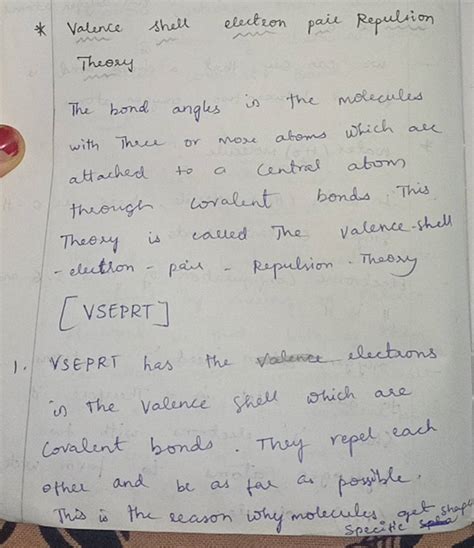 * Valence shell electron pair Repulsion
Theory
The bond angles in the molecules
with Three or more atoms which are
attached to a central atom
through covalent bonds. This
Theory is called The Valence-shell
- electron - pair - Repulsion - Theory
[VSEPRT]
1. VSEPRT has the valence electrons
in The Valence shell which are
Covalent bonds. They repel each
other and be as far as possible.
This is the reason why molecules get shape
Specific